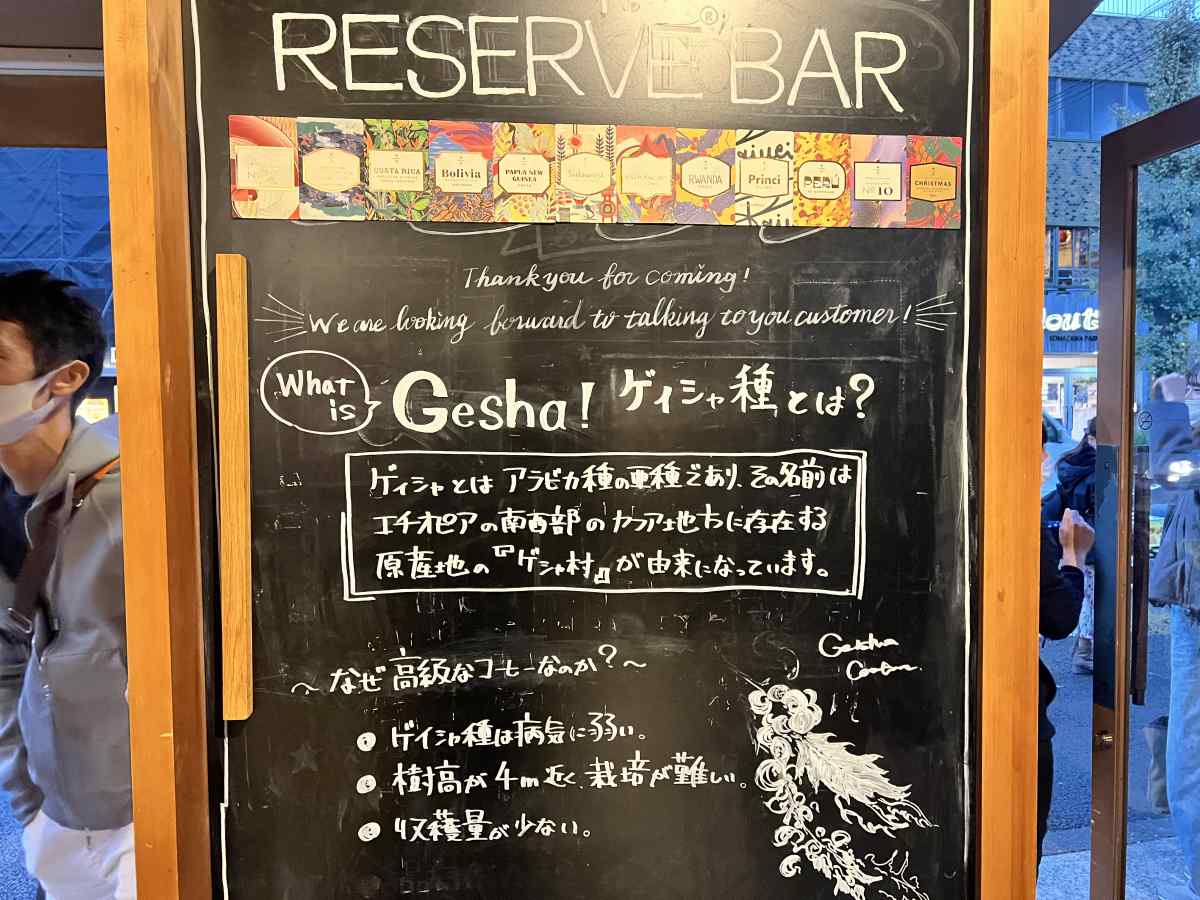 RESERVE® BAR
COSTA RICA
Bolivia
PAPUA NEW GUINEA
Sulawesi
RWANDA
Princi
PERÚ
Nº10
CHRISTMAS
Thank you for coming!
We are looking forward to talking to you customer!
What is
Gesha! ゲイシャ種とは?
ゲイシャとはアラビカ種の亜種であり、その名前は
エチオピアの南西部のカファ地方に存在する
原産地の『ゲシャ村』が由来になっています。
Geisha
~なぜ高級なコーヒーなのか?~
ゲイシャ種は病気に弱い。
樹高が4m近く、栽培が難しい。
収穫量が少ない。